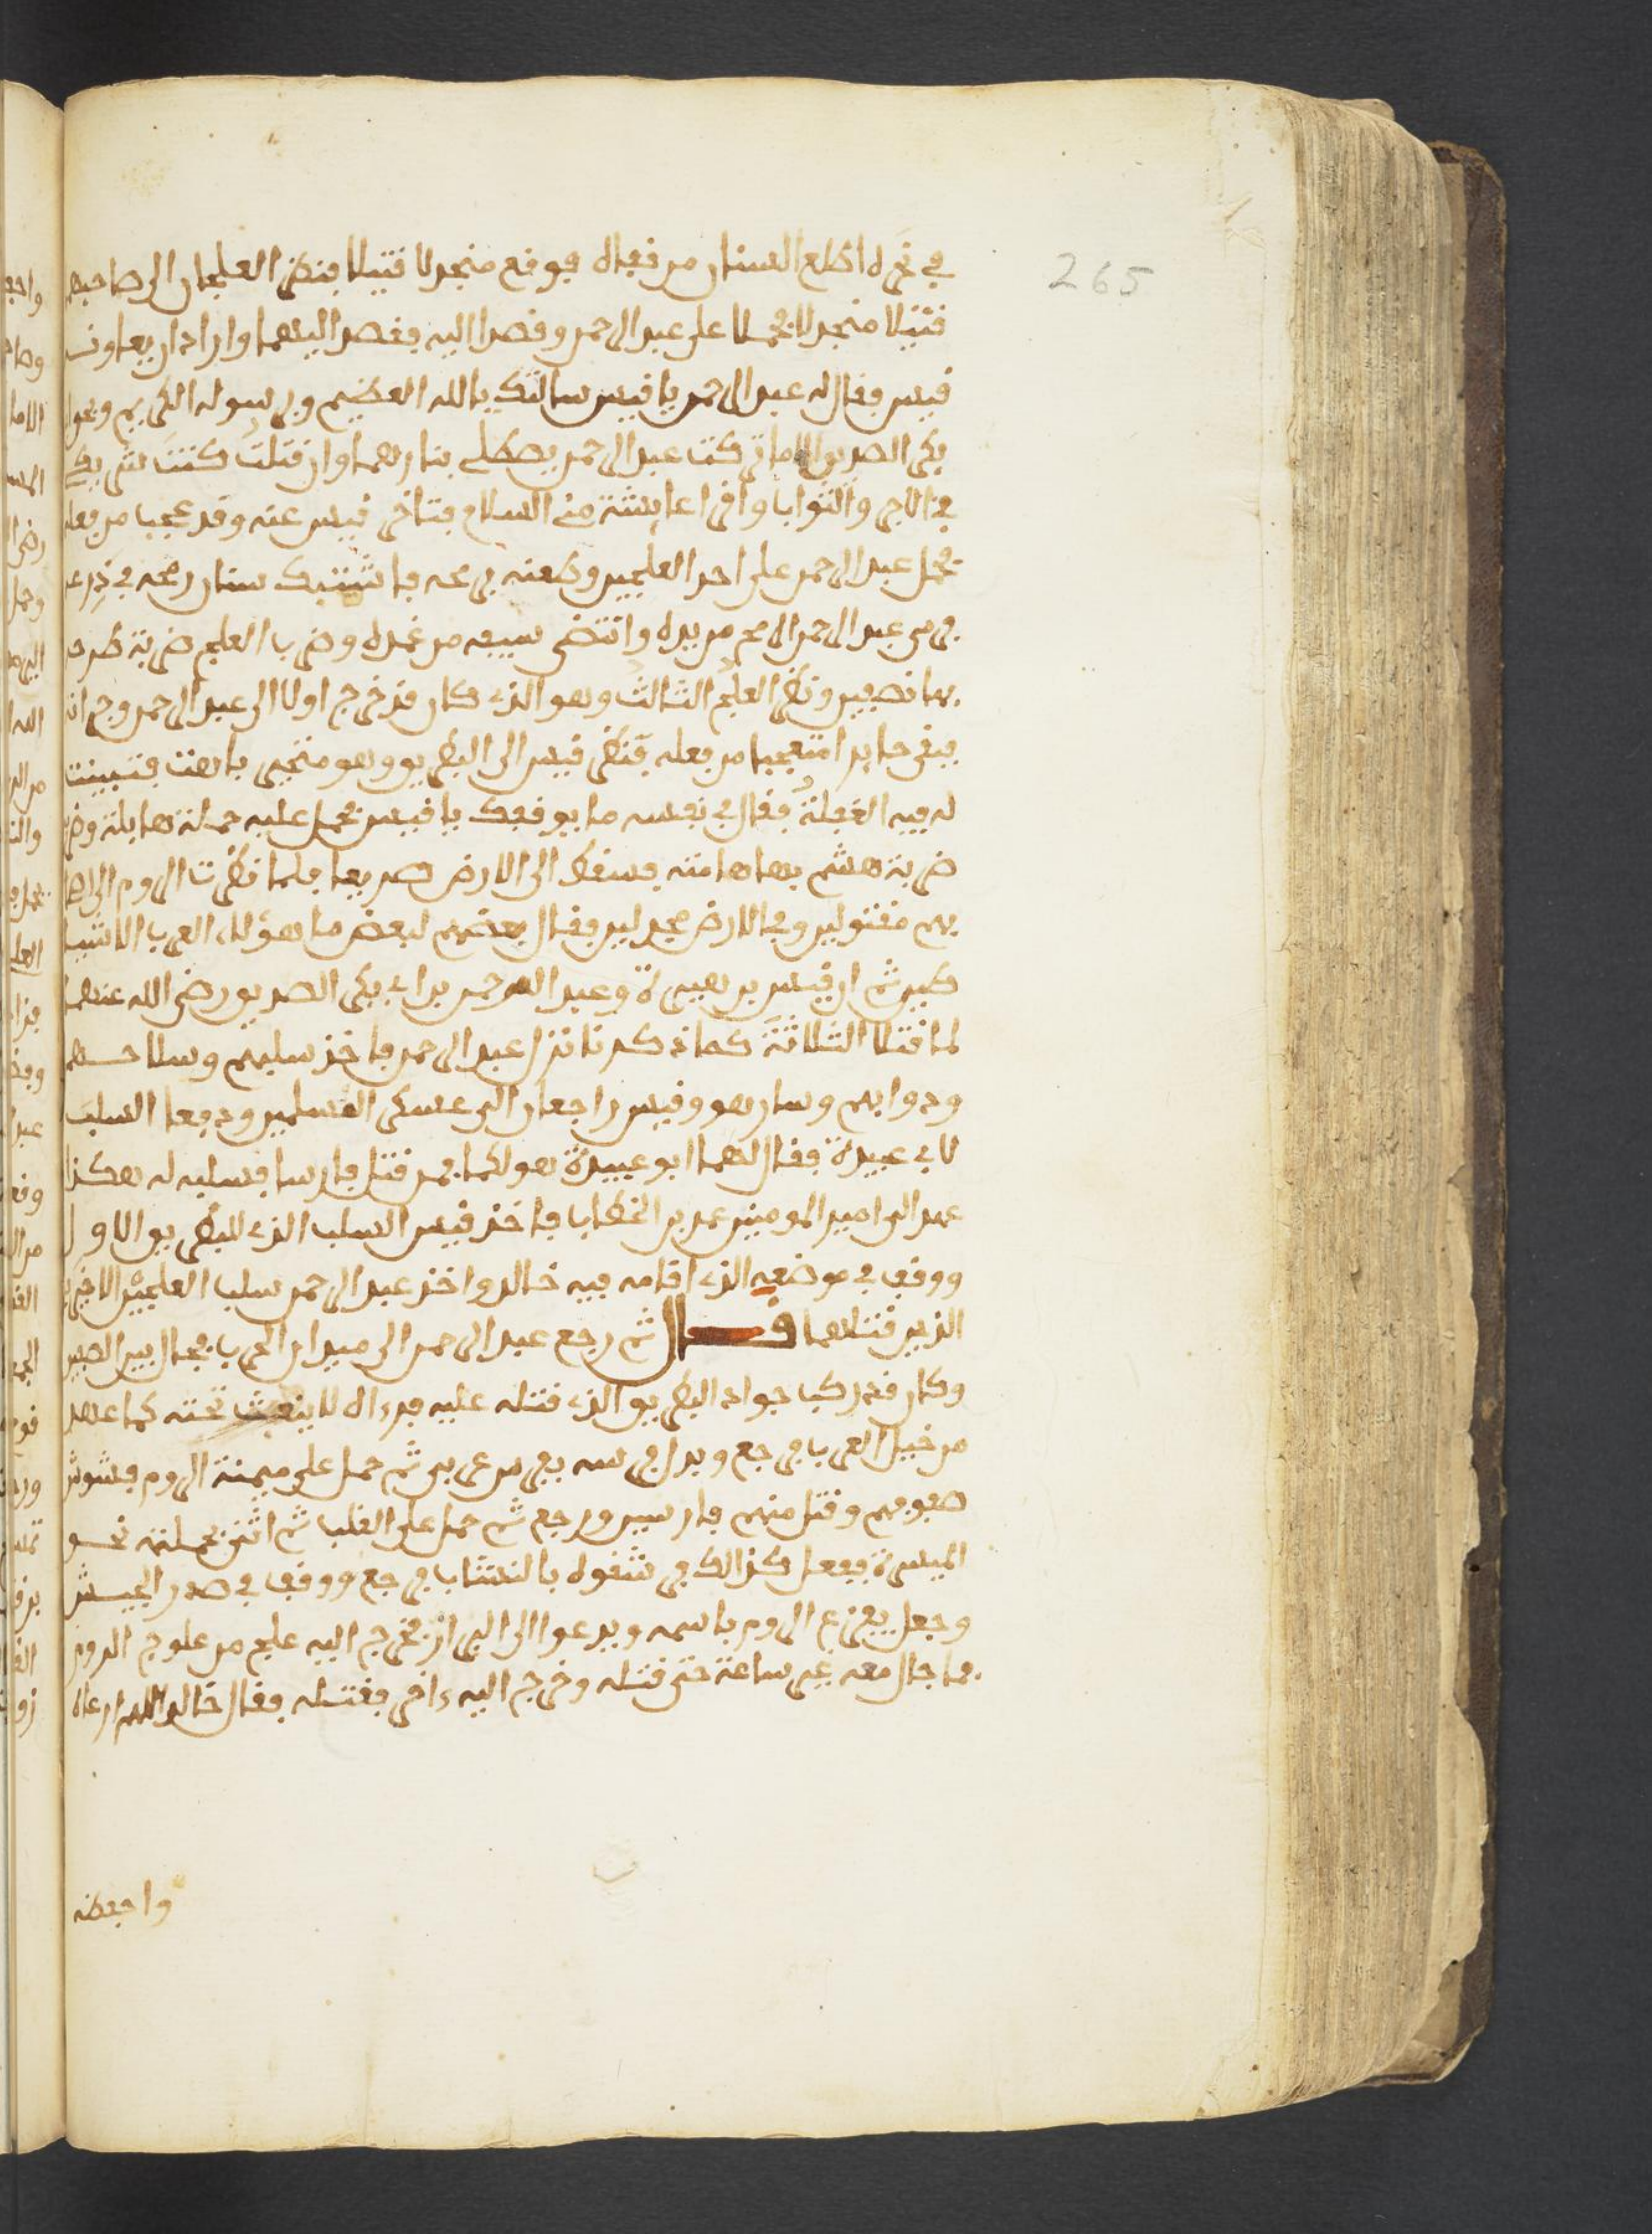 265
في نحره اطلع السنان من قفاه فوقع منجدلا قتيلا فنظر العلجان الى صاحبهما
قتيلا منجدلا فحملا على عبد الرحمن وقصدا اليه فقصد اليهما واراد ان يعاونه
قيس فقال له عبد الرحمن يا قيس سالتك بالله العظيم وبرسوله الكريم وبحق ابي
بكر الصديق الا ما تركت عبد الرحمن يصطلي بنارهما وان قتلت كنت شريكي
في الاجر والثواب واقرا عايشة مني السلام فتاخر قيس عنه وقد عجب من فعله
فحمل عبد الرحمن على احد العلجين وطعنه برمحه فاشتبك سنان رمحه في درعه
فرمى عبد الرحمن الرمح من يده وانتضى سيفه من غمده وضرب العلج ضربة طرحه
بها نصفين ونظر العلج الثالث وهو الذي كان قد خرج اولا الى عبد الرحمن وجرانه
فبقي حايرا متعجبا من فعله فنظر قيس الى البطريق وهو متحير باهت فتبينت
له فيه الغفلة فقال في نفسه ما يوقفك يا قيس فحمل عليه حملة هايلة وضربه
ضربة هشم بها هامته فسقط الى الارض صريعا فلما نظرت الروم الى اصحا
بهم مقتولين وفي الارض مجدلين فقال بعضهم لبعض ما هؤلاء العرب الا شيا
طين ثم ان قيس بن هبيرة وعبد الرحمن بن ابي بكر الصديق رضي الله عنهما
لما قتلا الثلاثة كما ذكرنا نزل عبد الرحمن فاخذ سلبهم وسلاحهم
ودوابهم وسار هو وقيس راجعان الى عسكر المسلمين ودفعا السلب
لابي عبيدة فقال لهما ابو عبيدة هو لكما فمن قتل فارسا فسلبه له هكذا
عهد الى امير المومنين عمر بن الخطاب فاخذ قيس السلب الذي للبطريق الاول
ووقف في موضعه الذي اقامه فيه خالد واخذ عبد الرحمن سلب العلجين الاخرين
الذين قتلهما قـــــال ثم رجع عبد الرحمن الى ميدان الحرب فجال بين الصفين
وكان قد ركب جواد البطريق الذي قتله عليه فرءاه لا ينبعث تحته كما عهد
من خيل العرب فرجع وبدل فرسه بفرس عربي ثم حمل على ميمنة الروم فشوش
صفوفهم وقتل منهم فارسين ورجع ثم حمل على القلب ثم اثنى بحملته نحو
الميسرة ففعل كذالك فرشقوه بالنشاب فرجع ووقف في صدر الجيش
وجعل يفزع الروم باسمه ويدعوا الى البراز فخرج اليه علج من علوج الروم
فما جال معه غير ساعة حتى قتله وخرج اليه ءاخر فقتله فقال خالد اللهم ارعاه
واحفظه